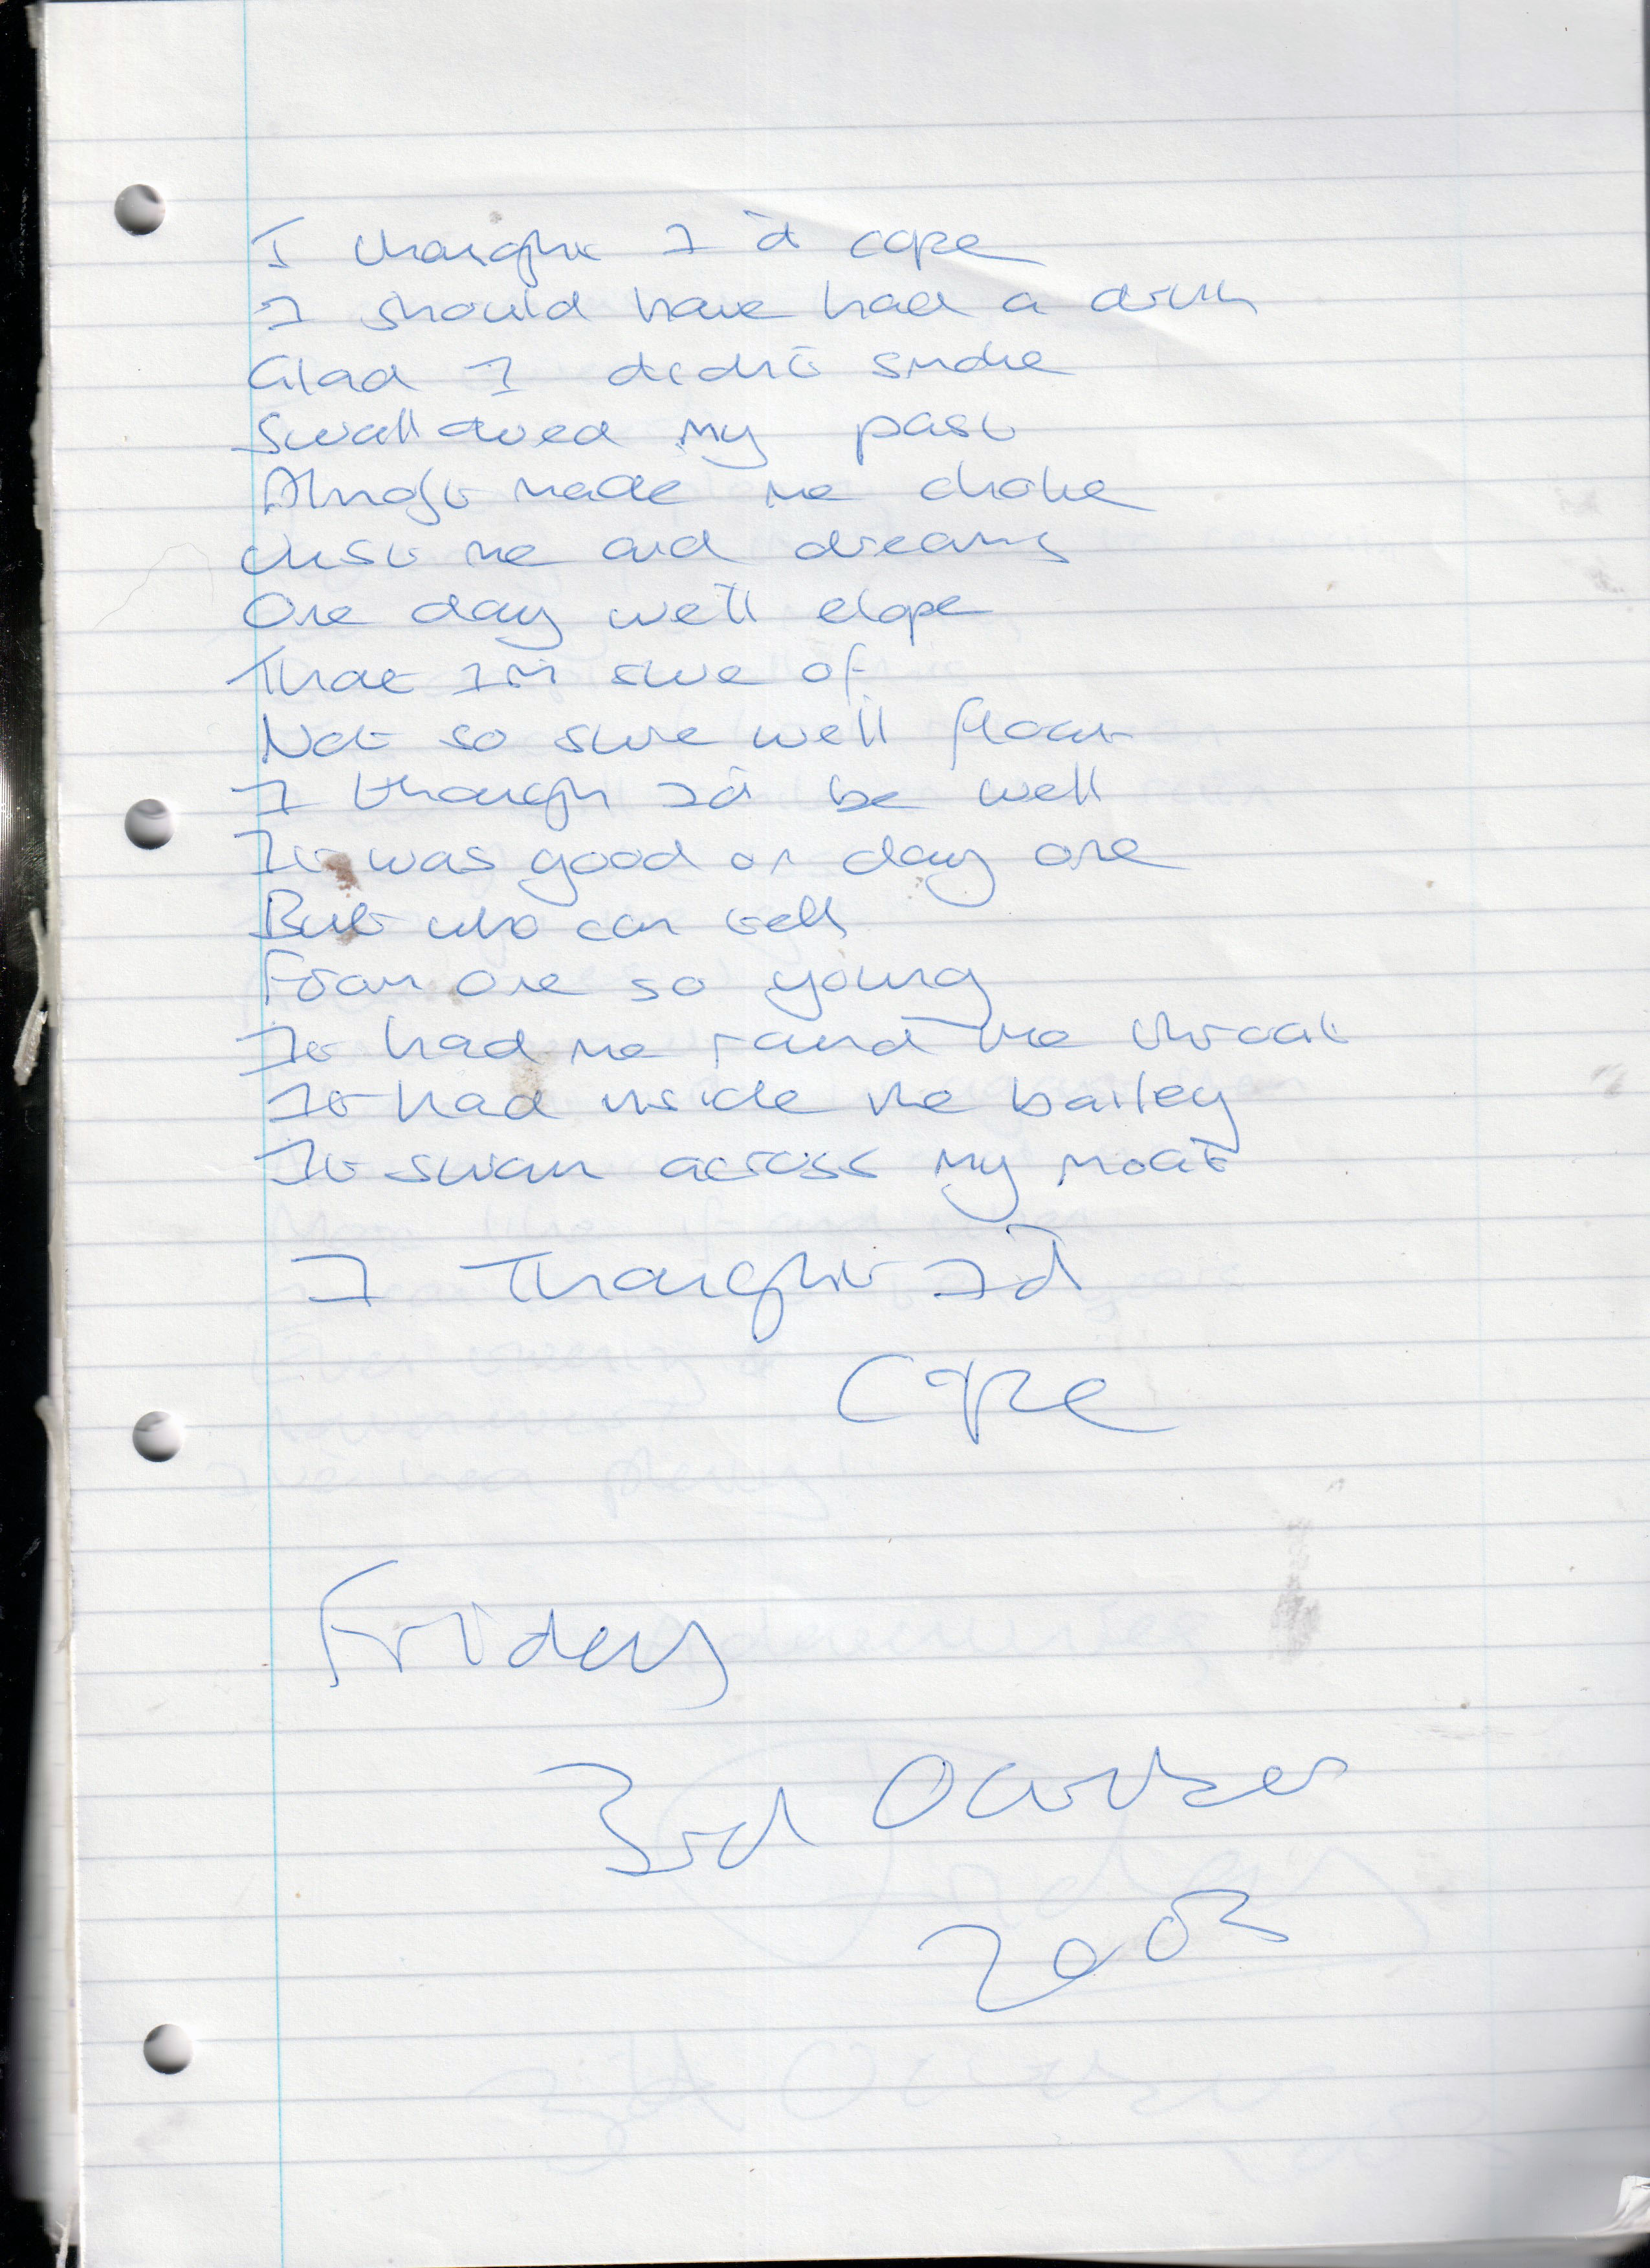 I thought I'd cope
I should have had a drink
Glad I didn't smoke
Swallowed my past
Almost made me choke
Just me and dreams
One day we'll elope
That I'm sure of
Not so sure we'll float
I though I'd be well
It was good on day one
But who can tell
From one so young
It had me round the throat
It had inside the bailey
It swam across my moat
I Thought I'd
Cope
Friday
3rd October